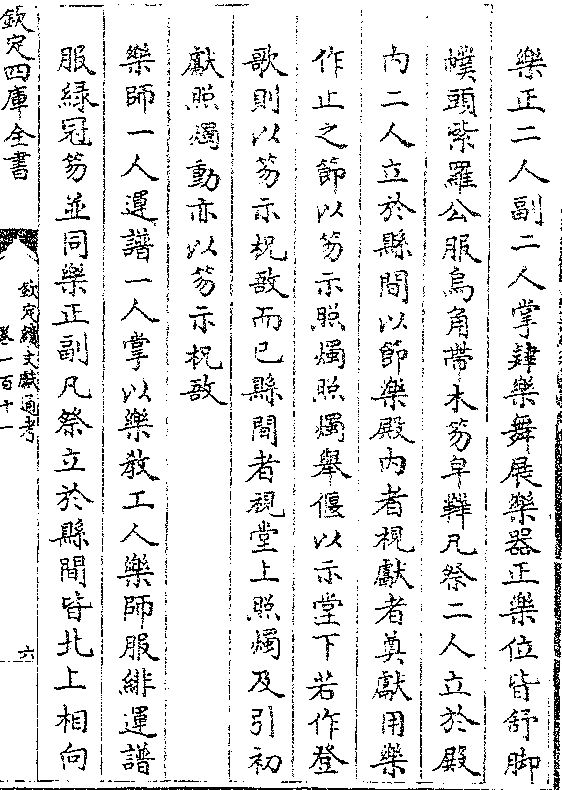 樂正二人副二人掌肄樂舞展樂器正樂位皆舒脚
幞頭紫羅公服烏角帶木笏皁鞾凡祭二人立於殿
内二人立於縣間以節樂殿内者視獻者奠獻用樂
作止之節以笏示照燭照燭舉偃以示堂下若作登
歌則以笏示柷敔而已縣間者視堂上照燭及引初
獻照燭動亦以笏示柷敔
樂師一人運譜一人掌以樂教工人樂師服緋運譜
服緑冠笏並同樂正副凡祭立於縣間皆北上相向
欽定四庫全書
欽定續文獻通考
卷一百十一
六